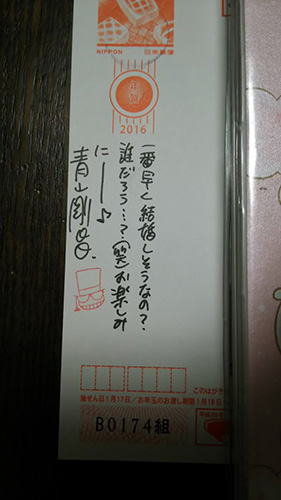 NIPPON 日本郵便
年賀
2016
一番早く結婚しそうなの?
誰だろう…?(笑)お楽しみ
にーー♪
青山剛昌.
このはがき
抽せん日1月17日/お年玉のお渡し期間1月18日
B0174組
平成28年